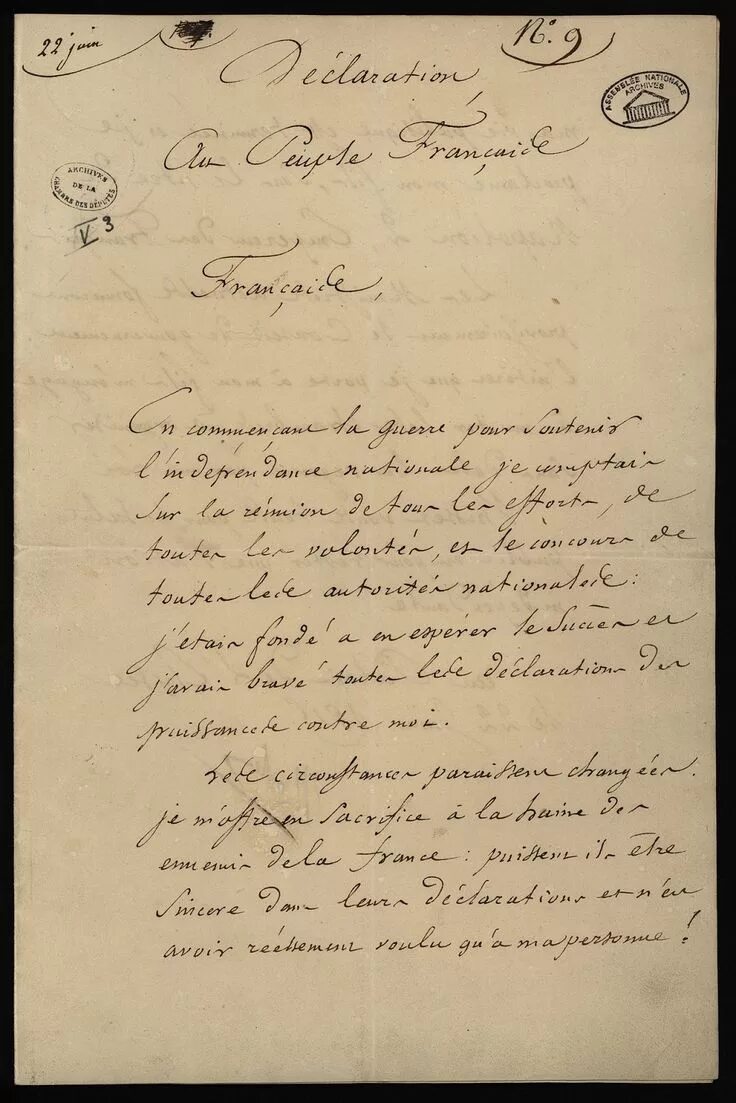 22 juin
N.o 9
ASSEMBLÉE NATIONALE
ARCHIVES
Déclaration
Au Peuple Français
ARCHIVES
DE LA
CHAMBRE DES DÉPUTÉS
V 3
Français,
En commençant la guerre pour soutenir
l'indépendance nationale je comptais
sur la réunion de tous les efforts, de
toutes les volontés, et le concours de
toutes les autorités nationales :
j'étais fondé a en espérer le succès et
j'avais bravé toutes les déclarations des
puissances contre moi.
Les circonstances paraissent changées.
je m'offre en sacrifice à la haine des
ennemis de la france : puissent ils être
sincere dans leurs déclarations et n'en
avoir réellement voulu qu'à ma personne !